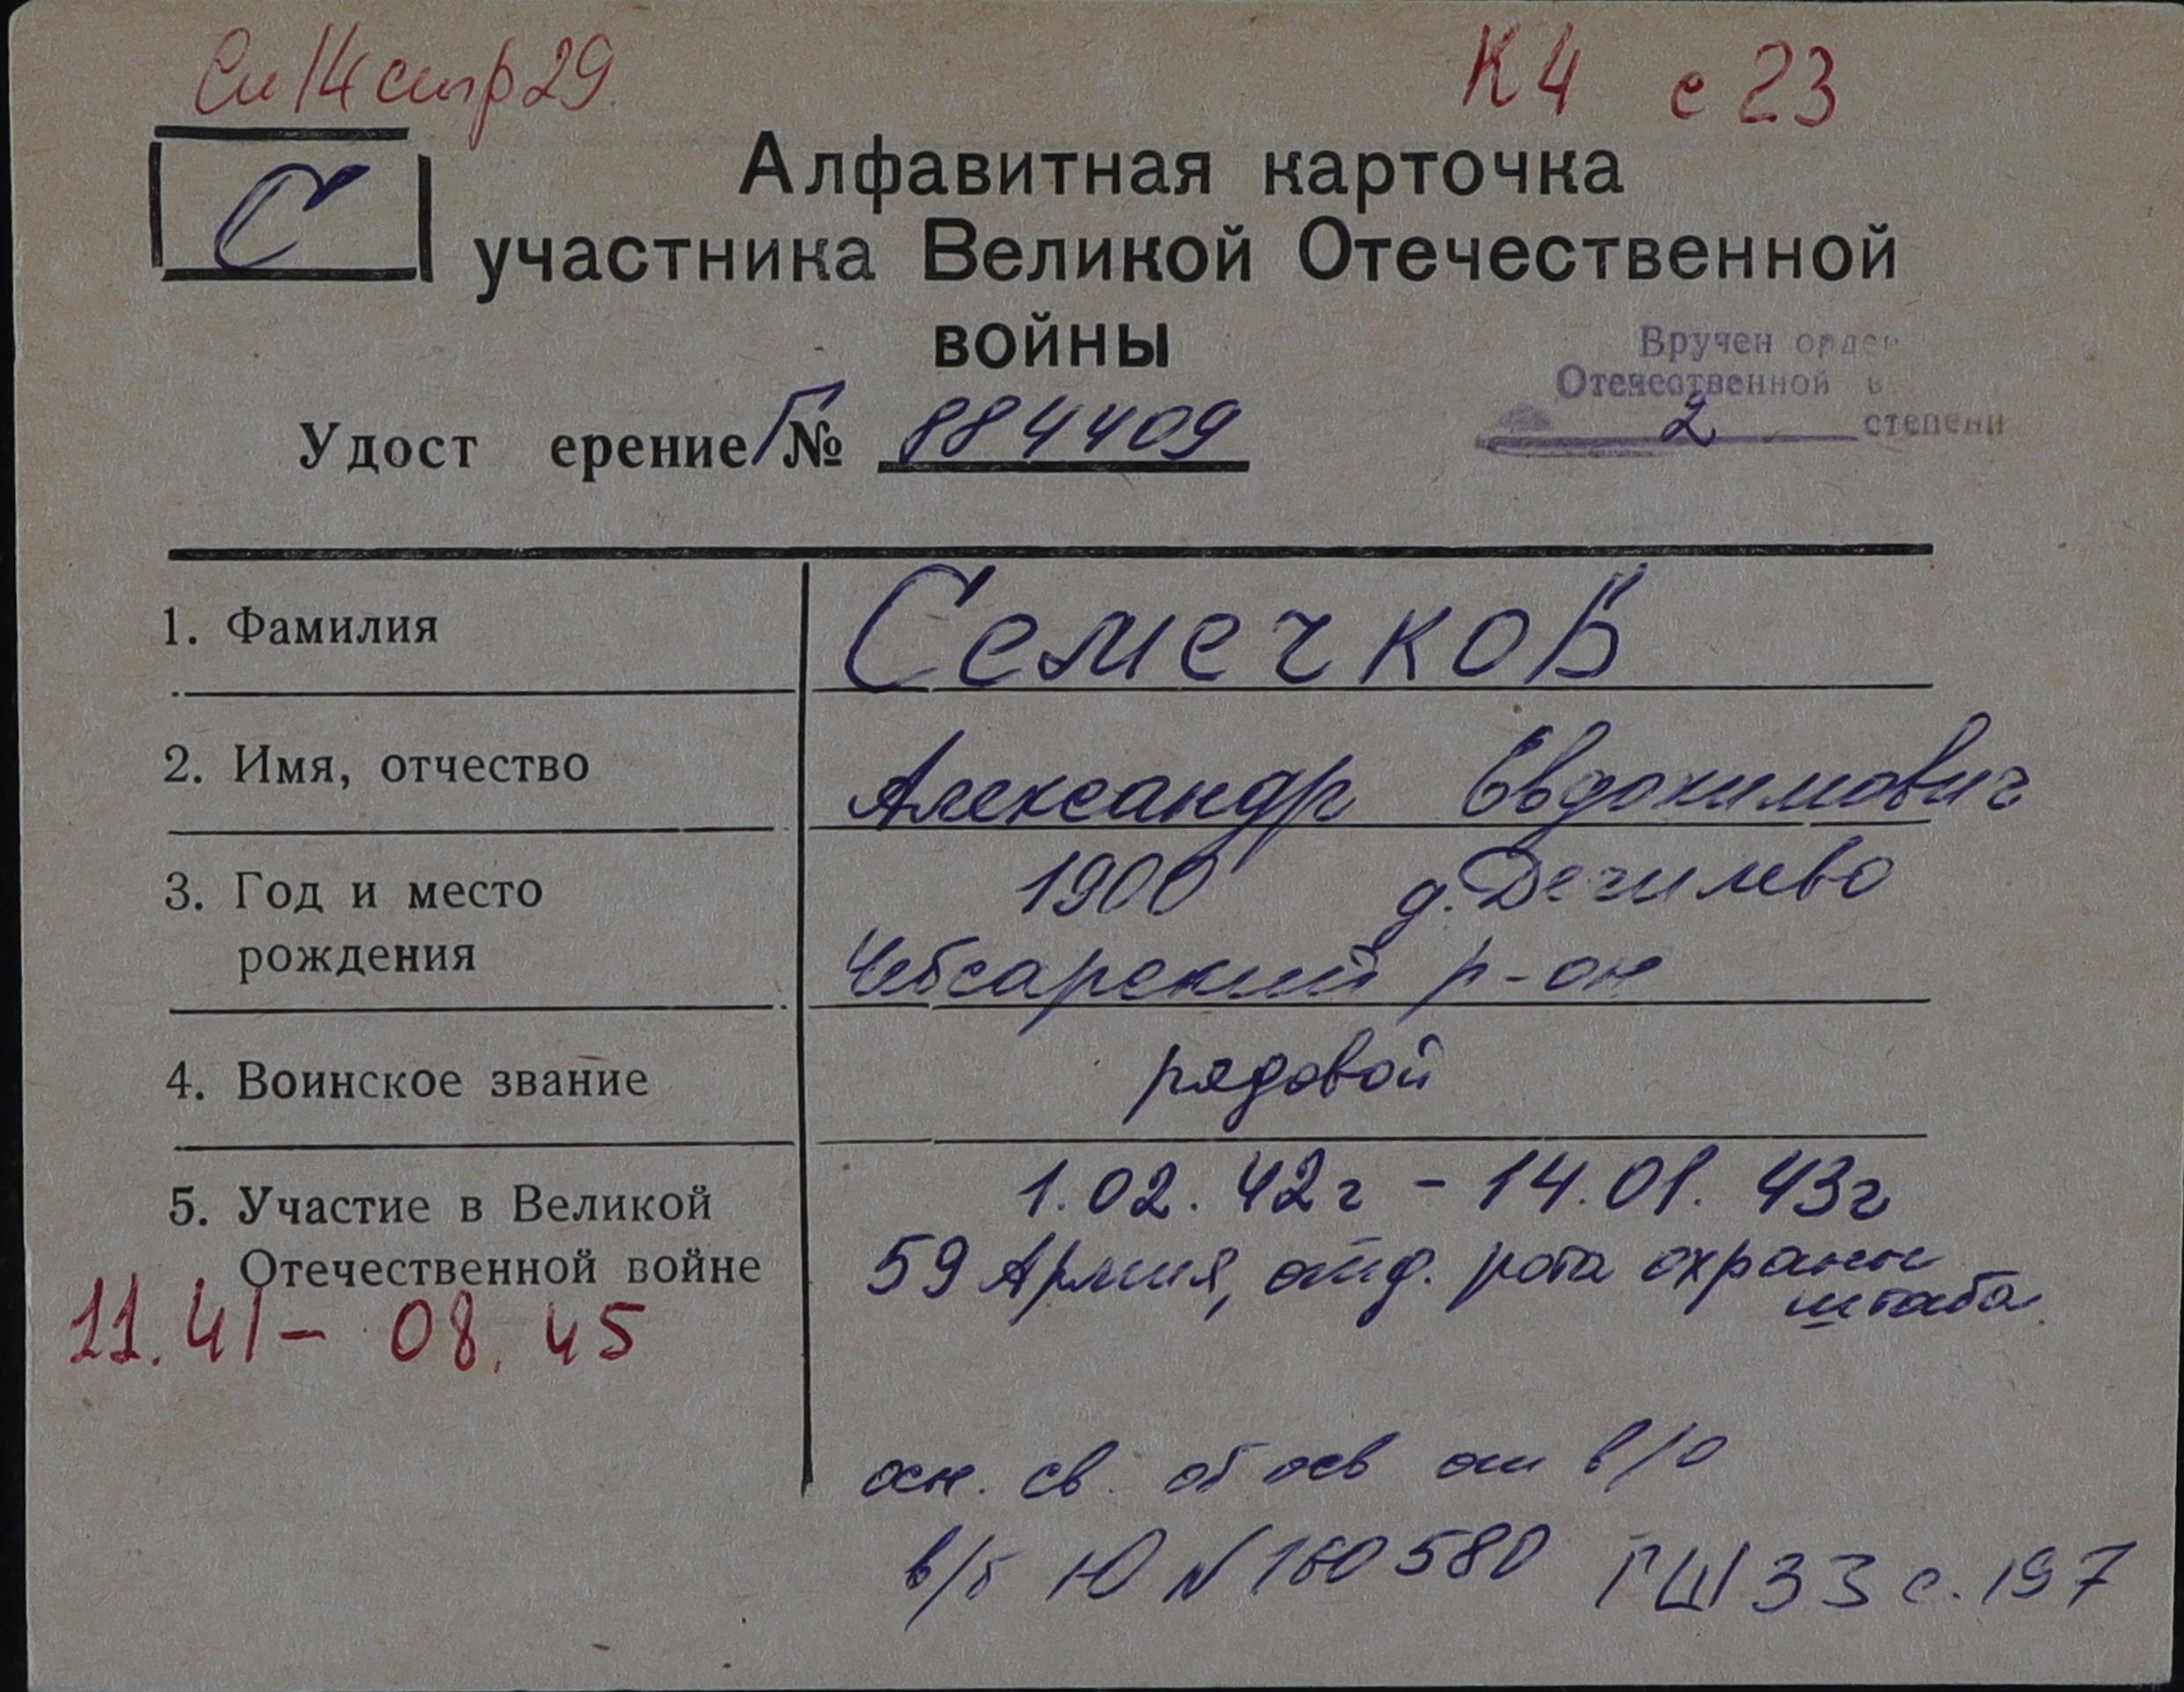 Сп 14 стр 29
К4 с 23
С
Алфавитная карточка
участника Великой Отечественной
войны
Вручен орден
Отечественной в
2 степени
Удост ерение Г № 884409
1. Фамилия
Семечков
2. Имя, отчество
Александр Евдокимович
3. Год и место
рождения
1900 д. Дечилево
Чебсарский р-он
4. Воинское звание
рядовой
5. Участие в Великой
Отечественной войне
11.41 - 08.45
1.02.42г - 14.01.43г
59 Армия, отд. рота охраны
штаба.
осн. св. об осв от в/о
в/б Ю N 160580 ГШ 33 с. 197